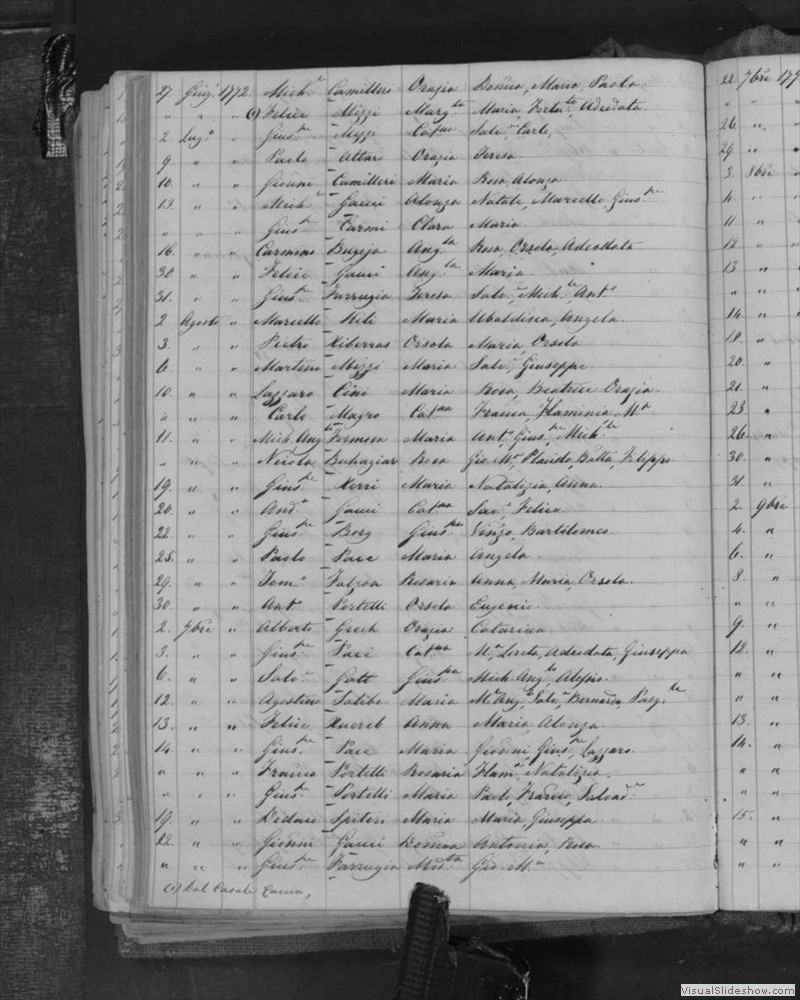 27 Giug.o 1772. Mich.e Camilleri Orazia Bonina, Maria, Paolo
" " " (1) Felice Mizzi Marg.ta Maria Adeodata
2. Lug.o " Gius.pe Mizzi Cat.na Salv.e Carlo,
9. " " Paolo Attard Orazia Teresa
10. " " Gionni Camilleri Maria Rosa, Alonza
13. " " Mich.e Gauci Alonza Natale, Marcello, Gius.pe
" " " Gius.pe Carmi Clara Maria
16. " " Carmine Bugeja Ang.la Rosa, Orsola, Adeodata
30. " " Felice Gauci Ang.la Maria
31. " " Gius.pe Farrugia Teresa Salv.e Mich.le Ant.o
2 Agosto " Marcello Maria Ubaldisca, Angela
3 " " Pietro Xiberras Orsola Maria, Orsola
6. " " Martino Mizzi Maria Salv.e Giuseppe
10. " " Lazzaro Cini Maria Rosa, Beatrice Orazia
" " " Carlo Magro Cat.na Franca, Flaminia M.a
11. " " Mich.Ang.lo Formosa Maria Ant.o Gius.pe Mich.le
" " " Nicola Buhagiar Rosa Gio M.a Placido, Batta, Filippo
19. " " Gius.pe Xerri Maria Natalizia, Anna
20. " " And.a Gauci Cat.na Sav.o Felice
22. " " Gius.pe Borg Gius.pa Vinzo, Bartolomeo
25. " " Paolo Pace Maria Angela
29. " " Tom.o Falzon Rosaria Anna, Maria, Orsola
30. " " Ant.o Portelli Orsola Eugenio
2. 7bre " Alberto Grech Orazia Catarina
3. " " Gius.pe Paci Cat.na M.a Loreta, Adeodata, Giuseppa
6. " " Salv.e Gatt Gius.pa Mich.Ang.lo Alessio
12. " " Agostino Saliba Maria M.l Ang.lo Salv.e Bernardo, Pasq.le
13. " " Felice Xuereb Anna Maria, Alonza
14. " " Gius.pe Pace Maria Gionni Gius.pe Lazzaro
" " " Franco Portelli Rosaria Flam.a Natalizia
" " " Gius.pe Portelli Maria Paolo, Franco, Salvad.e
19. " " Didaco Spiteri Maria Maria, Giuseppa
22. " " Gionni Gauci Bonina Antonia, Rosa
" " " Gius.pe Farrugia Mod.ta Gio M.a
(1) Dal Casale Caccia,
22. 7bre 177
" "
26 "
29 "
3. 8bre
4. "
11 "
12 "
13. "
" "
14. "
18. "
20. "
21. "
23 "
26. "
30. "
31. "
2. 9bre
4. "
6. "
8. "
" "
9. "
12. "
" "
" "
13. "
14. "
" "
" "
15. "
" "
" "
VisualSlideshow.com